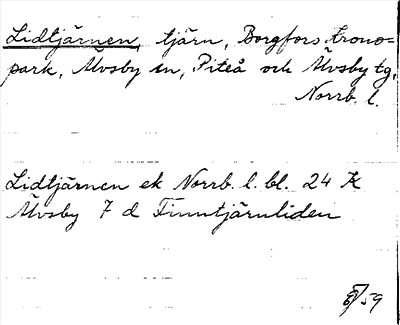 Lidtjärnen, tjärn, Borgfors Krono=
park, Älvsby sn, Piteå och Älvsby tg,
Norrb. l.
Lidtjärnen ek Norrb. l. bl. 24 K
Älvsby 7 d Finntjärnliden
/59